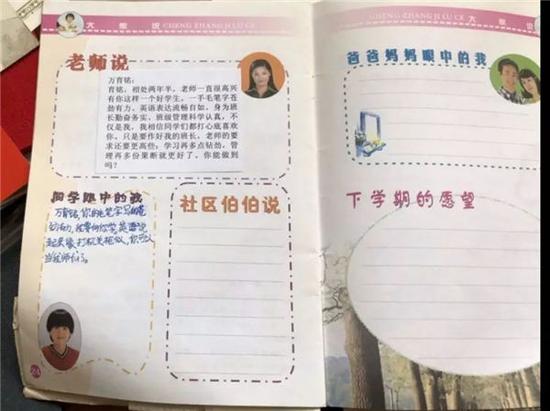 大家说 CHENG ZHANG JI LU CE
老师说
万育铭:
育铭,相处两年半,老师一直很高兴
有你这样一个好学生。一手毛笔字苍
劲有力,英语表达流畅自如。身为班
长勤奋务实,班级管理科学认真,不
仅是我,我相信同学们都打心底喜欢
你。只是要作好我的班长,老师的要
求还要更高些:学习再多点钻劲,管
理再多份果断就更好了。你能做到
吗?
同学眼中的我
万育铭,你的毛笔字写的苍
劲有力,我要向你学,英语说
起来像打机关枪似,你可以
当老师了。
社区伯伯说
24
CHENG ZHANG JI LU CE 大家说
爸爸妈妈眼中的我
下学期的愿望